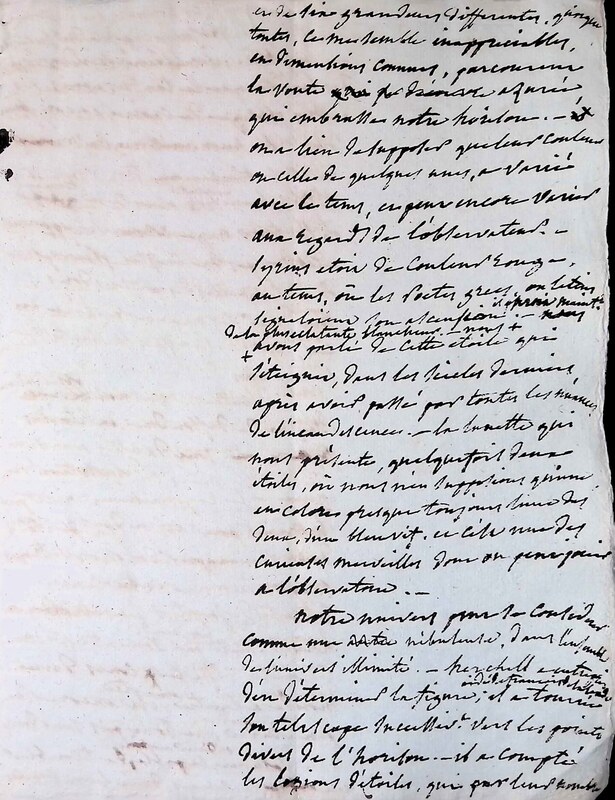 et de six grandeurs differentes, quoique
toutes, ce me semble inappreciables,
en dimentions connues, parcourir
la voute azurée
qui embrasse notre horison. —
on a lieu de supposer que leur couleur
ou celle de quelques unes, a varié
avec les tems, et peut encore varier
aux regards de l'observateur. —
syrius etoit de couleur rouge,
au tems, où les poetes grecs, ou latins
signaloient son ascension. — il paroit maint.t
de la plus eclatante blancheur. — nous +
+ avons parlé de cette etoile qui
s'éteignit, dans les siecles derniers
après avoir passé par toutes les nuances
de l'incandescence. — la lunette qui
nous présente, quelquefois deux
étoiles, où nous n'en supposions qu'une
en colore presque toujours l'une des
deux, d'un bleu vif. et c'est une des
curieuses merveilles dont on peut jouir
a l'observatoire. —
notre univers peut se considerer
comme une nébuleuse, dans l'ensemble
de l'univers illimité. — herschell a entrepris
d'en déterminer la figure; il a tourné
son telescope successiv.t vers les points
divers de l'horison. — il a compté
les légions d'étoiles, qui par leur nombre